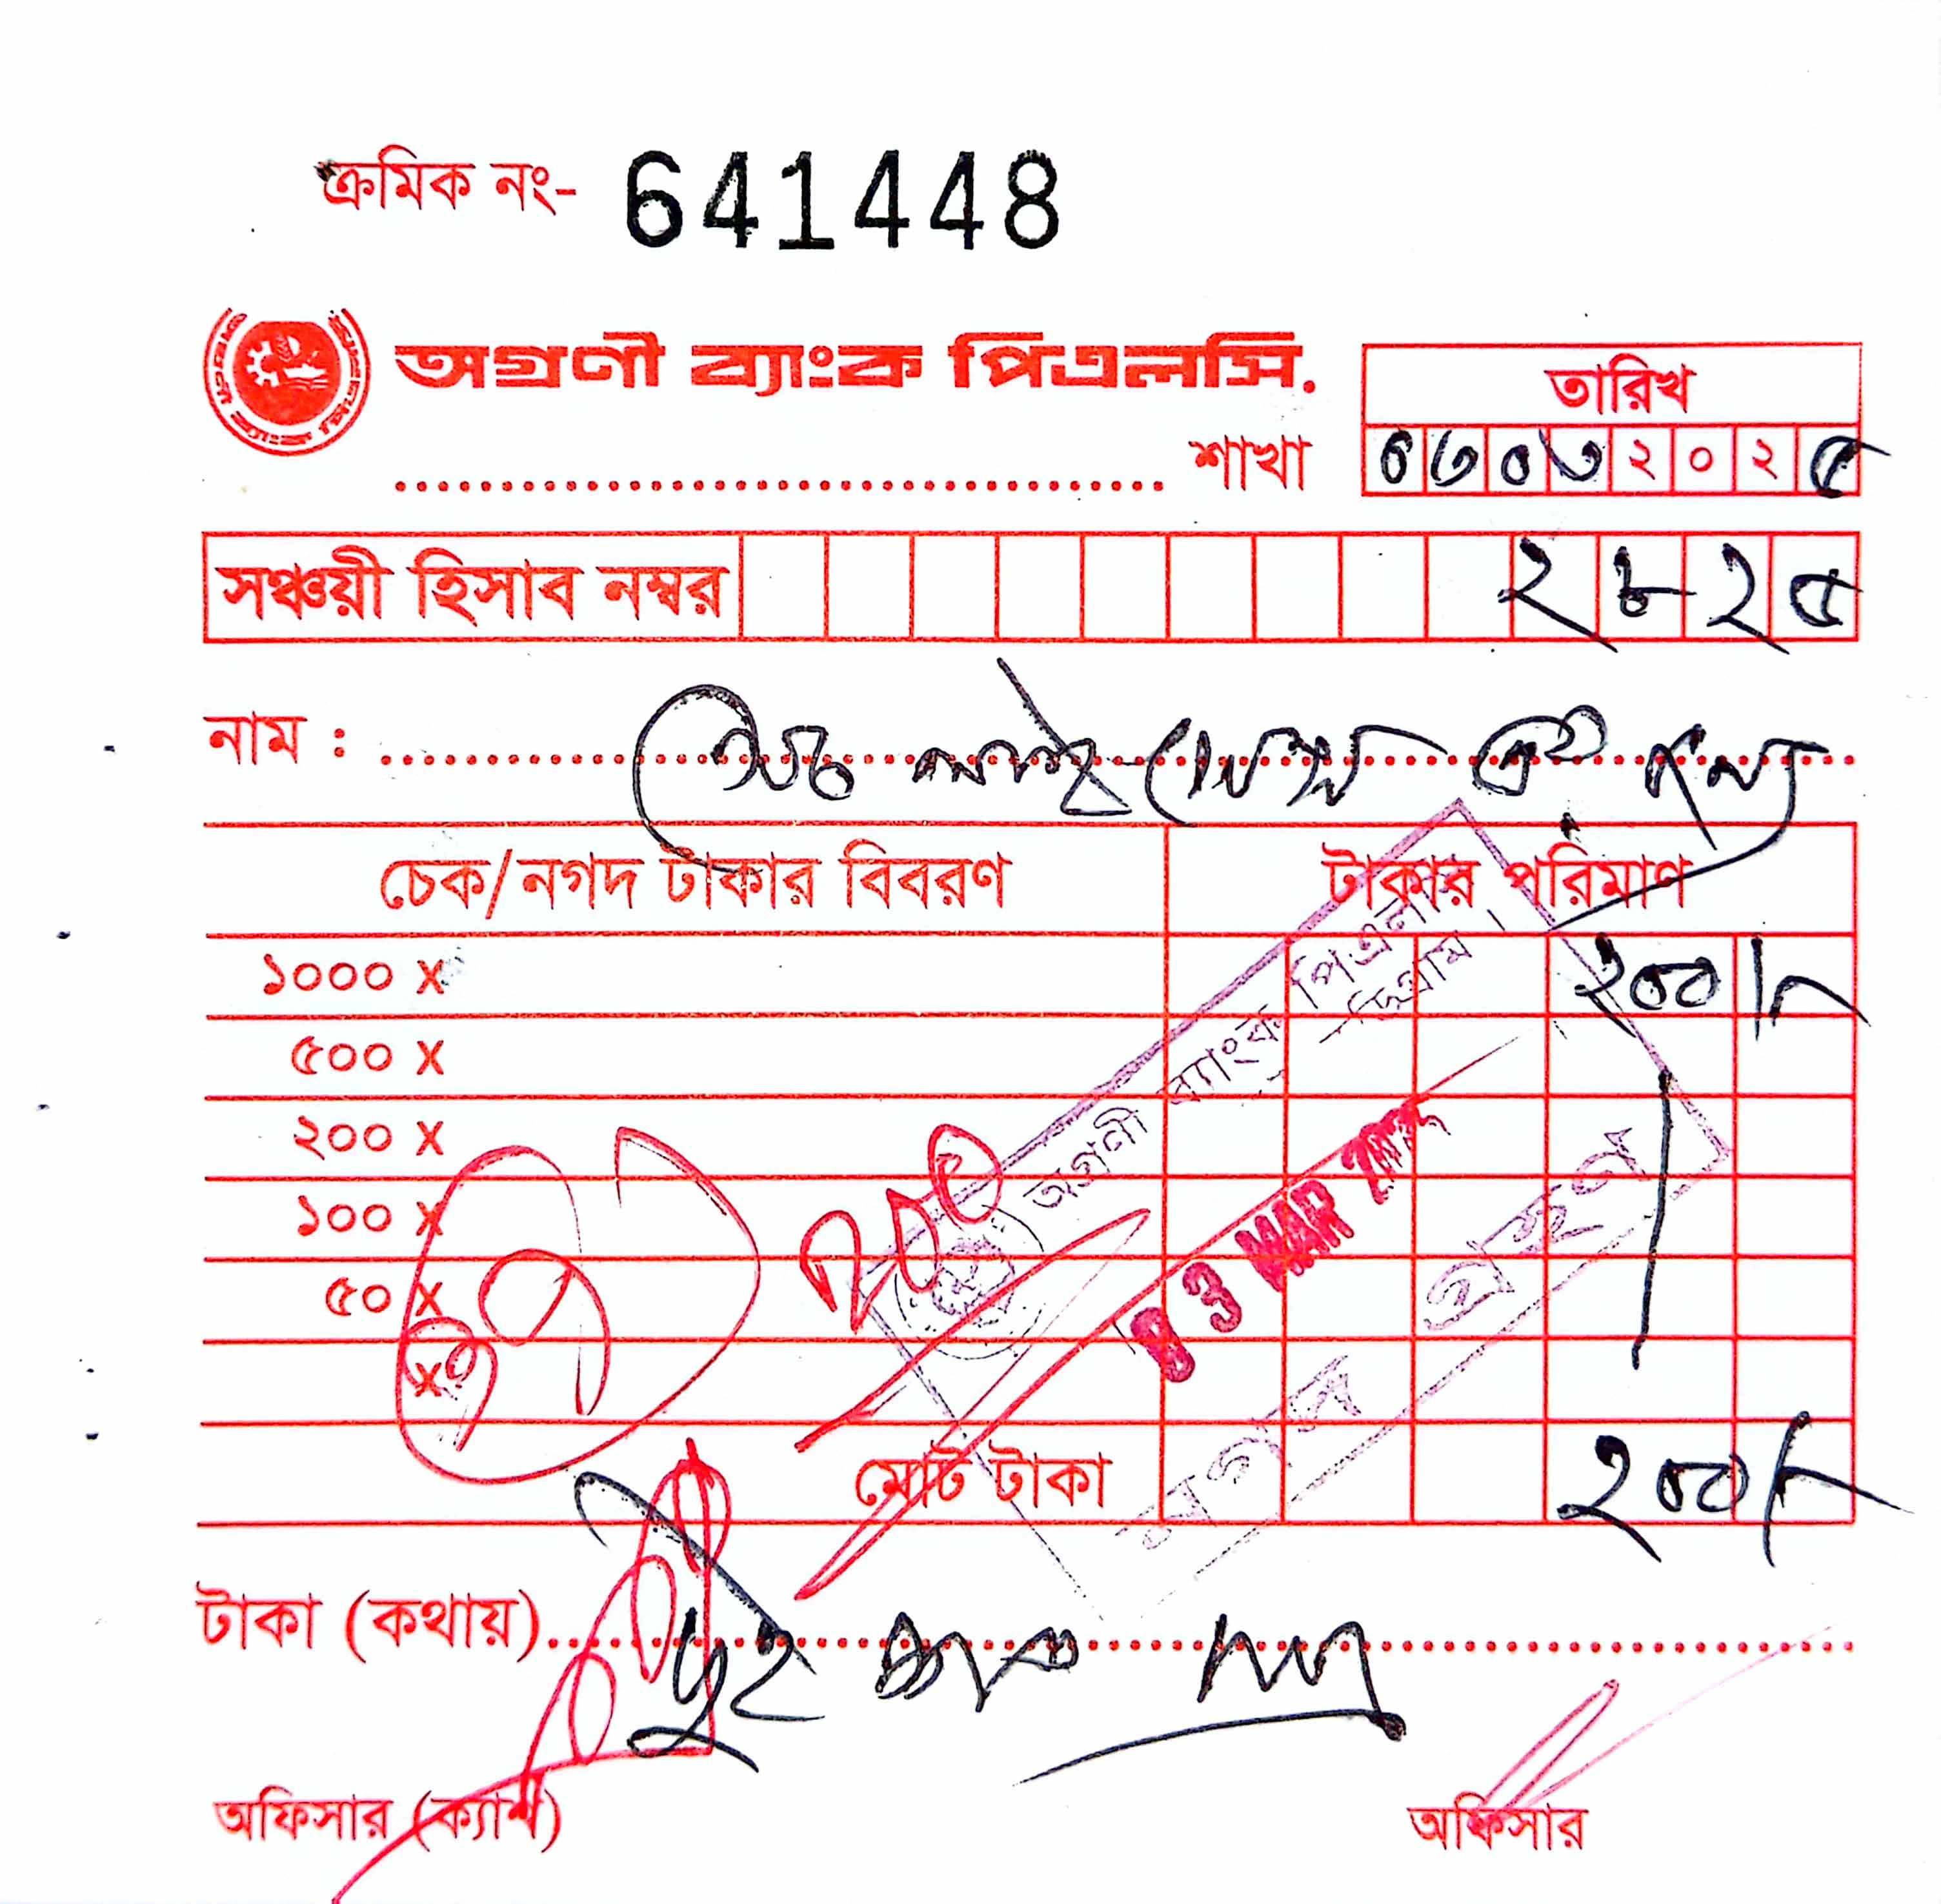 ক্রমিক নং- 641448
অগ্রণী ব্যাংক পিএলসি.
তারিখ
শাখা
০৩০৩২০২৫
সঞ্চয়ী হিসাব নম্বর ২৮২৫
নাম :
চেক/নগদ টাকার বিবরণ টাকার পরিমাণ
১০০০ X ২০০/-
৫০০ X
২০০ X
১০০ X
৫০ X
X
200
অগ্রণী ব্যাংক পিএল
03 MAR 2025
নগদ গ্রহণ
মোট টাকা ২০০/-
টাকা (কথায়) দুই শত
অফিসার (ক্যাশ) অফিসার